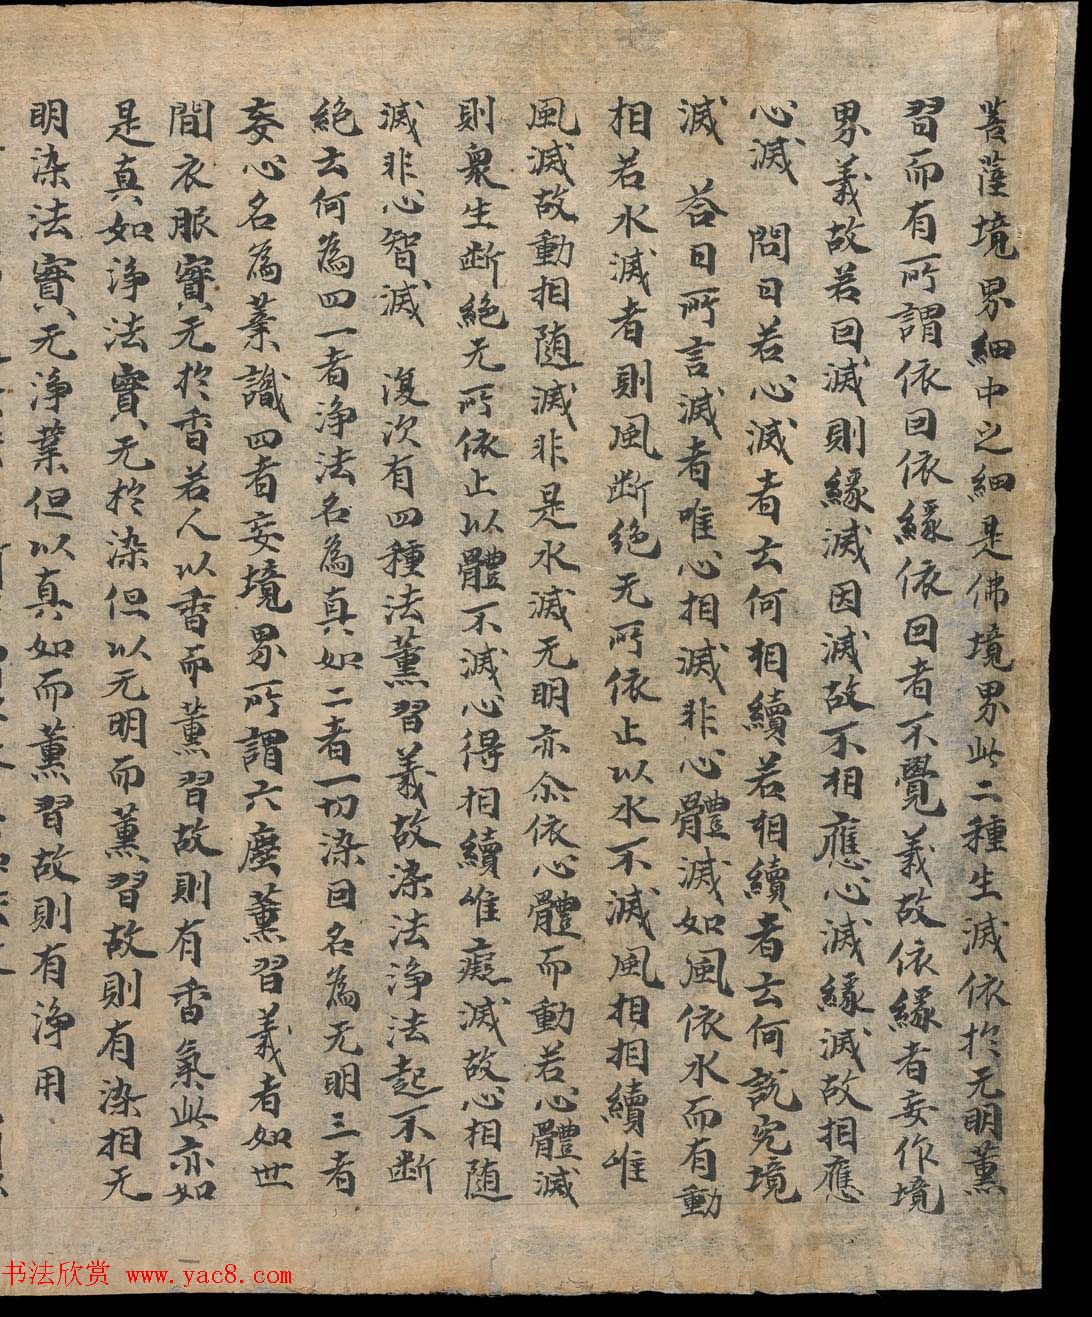 菩薩境界細中之細是佛境界此二種生滅依於无明薰
習而有所謂依因依緣依因者不覺義故依緣者妄作境
界義故若因滅則緣滅因滅故不相應心滅緣滅故相應
心滅 問曰若心滅者云何相續若相續者云何說究境
滅 荅曰所言滅者唯心相滅非心體滅如風依水而有動
相若水滅者則風断絕无所依止以水不滅風相相續唯
風滅故動相随滅非是水滅无明亦尒依心體而動若心體滅
則衆生断絕无所依止以體不滅心得相續唯癡滅故心相随
滅非心智滅 復次有四種法薰習義故染法淨法起不断
絕云何為四一者淨法名為真如二者一切染因名為无明三者
妄心名為業識四者妄境界所謂六塵薰習義者如世
間衣服實无於香若人以香而薰習故則有香氣此亦如
是真如淨法實无於染但以无明而薰習故則有染相无
明染法實无淨業但以真如而薰習故則有淨用
书法欣赏 www.yac8.com